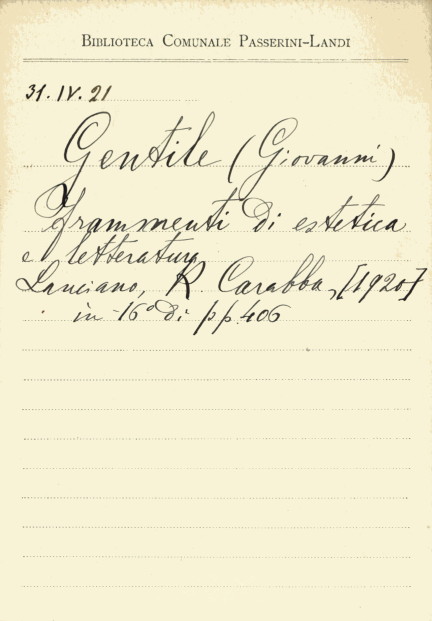 BIBLIOTECA COMUNALE PASSERINI-LANDI
31. IV. 21
Gentile (Giovanni)
Frammenti di estetica
e letteratura
Lanciano, R. Carabba, [1920]
in 16° di pp. 406